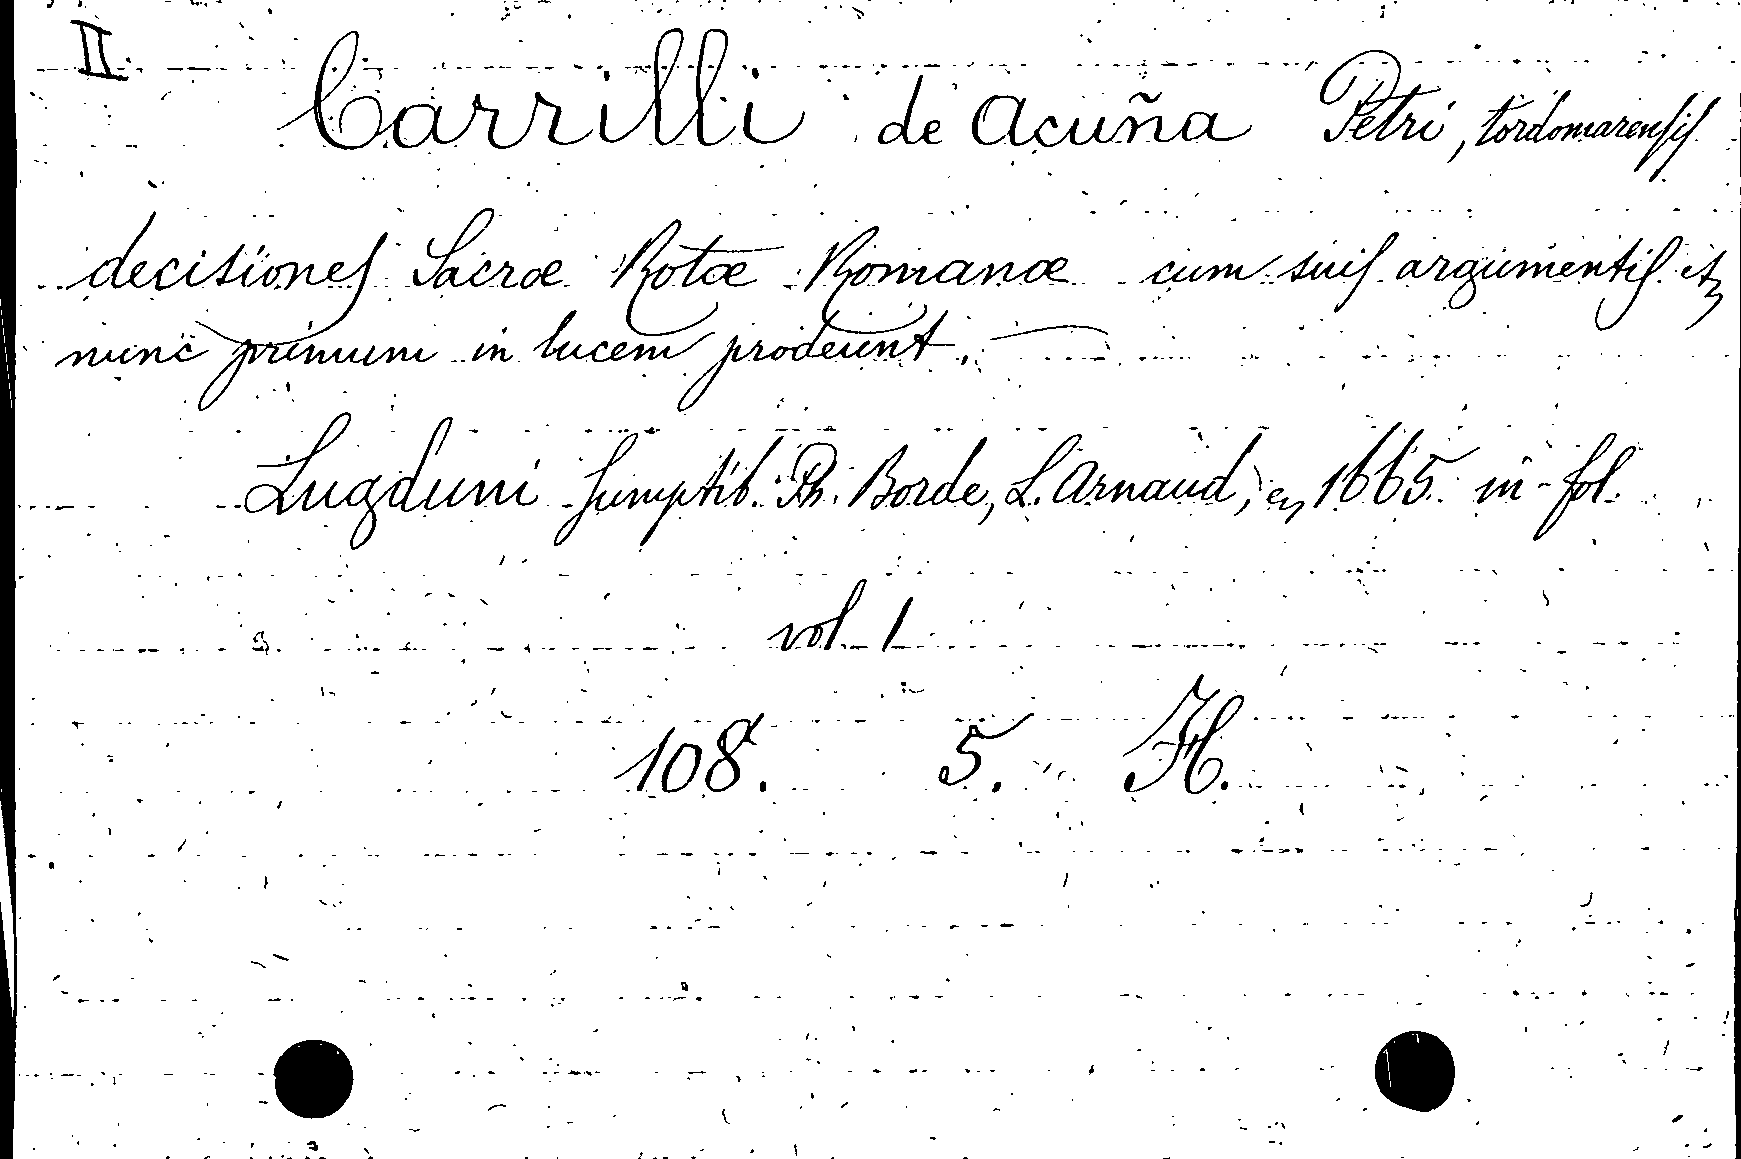 II.
Carrilli de Acuña Petri, tordomarensis
decisiones Sacræ Rotæ Romanæ cum suis argumentis etc
nunc primum in lucem prodeunt.
Lugduni sumptib. Ph. Borde, L. Arnaud, etc 1665. in-fol.
vol. 1
108. 5. H.